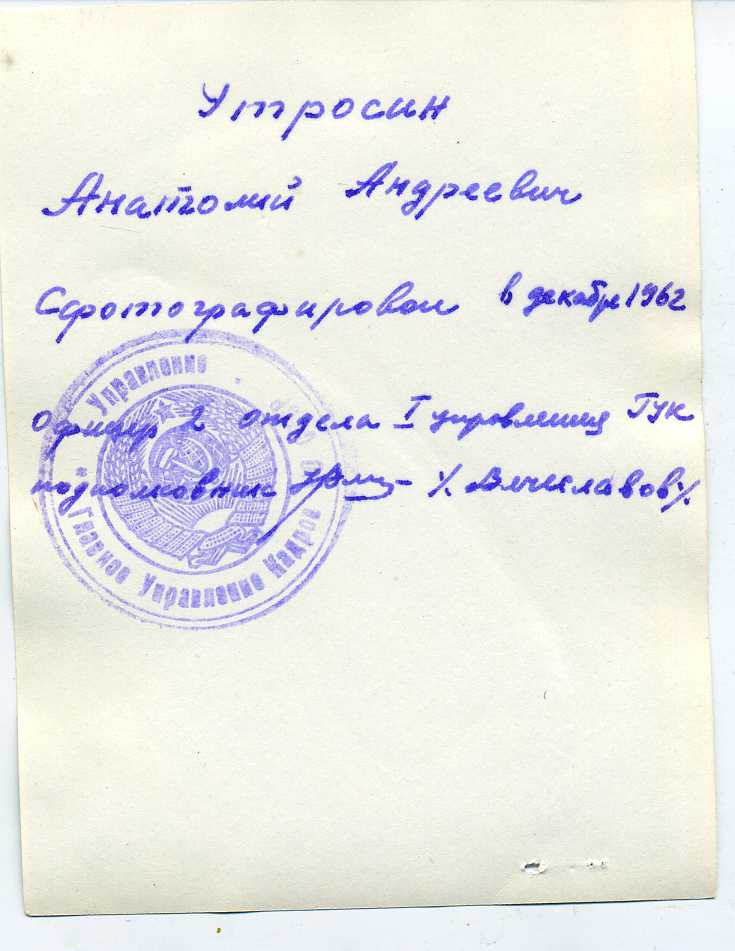 Утросин
Анатолий Андреевич
Сфотографирован в декабре 1962
Офицер 2 отдела I управления ГУК
подполковник /. Вячеславов/.
Управление
Главное Управление Кадров